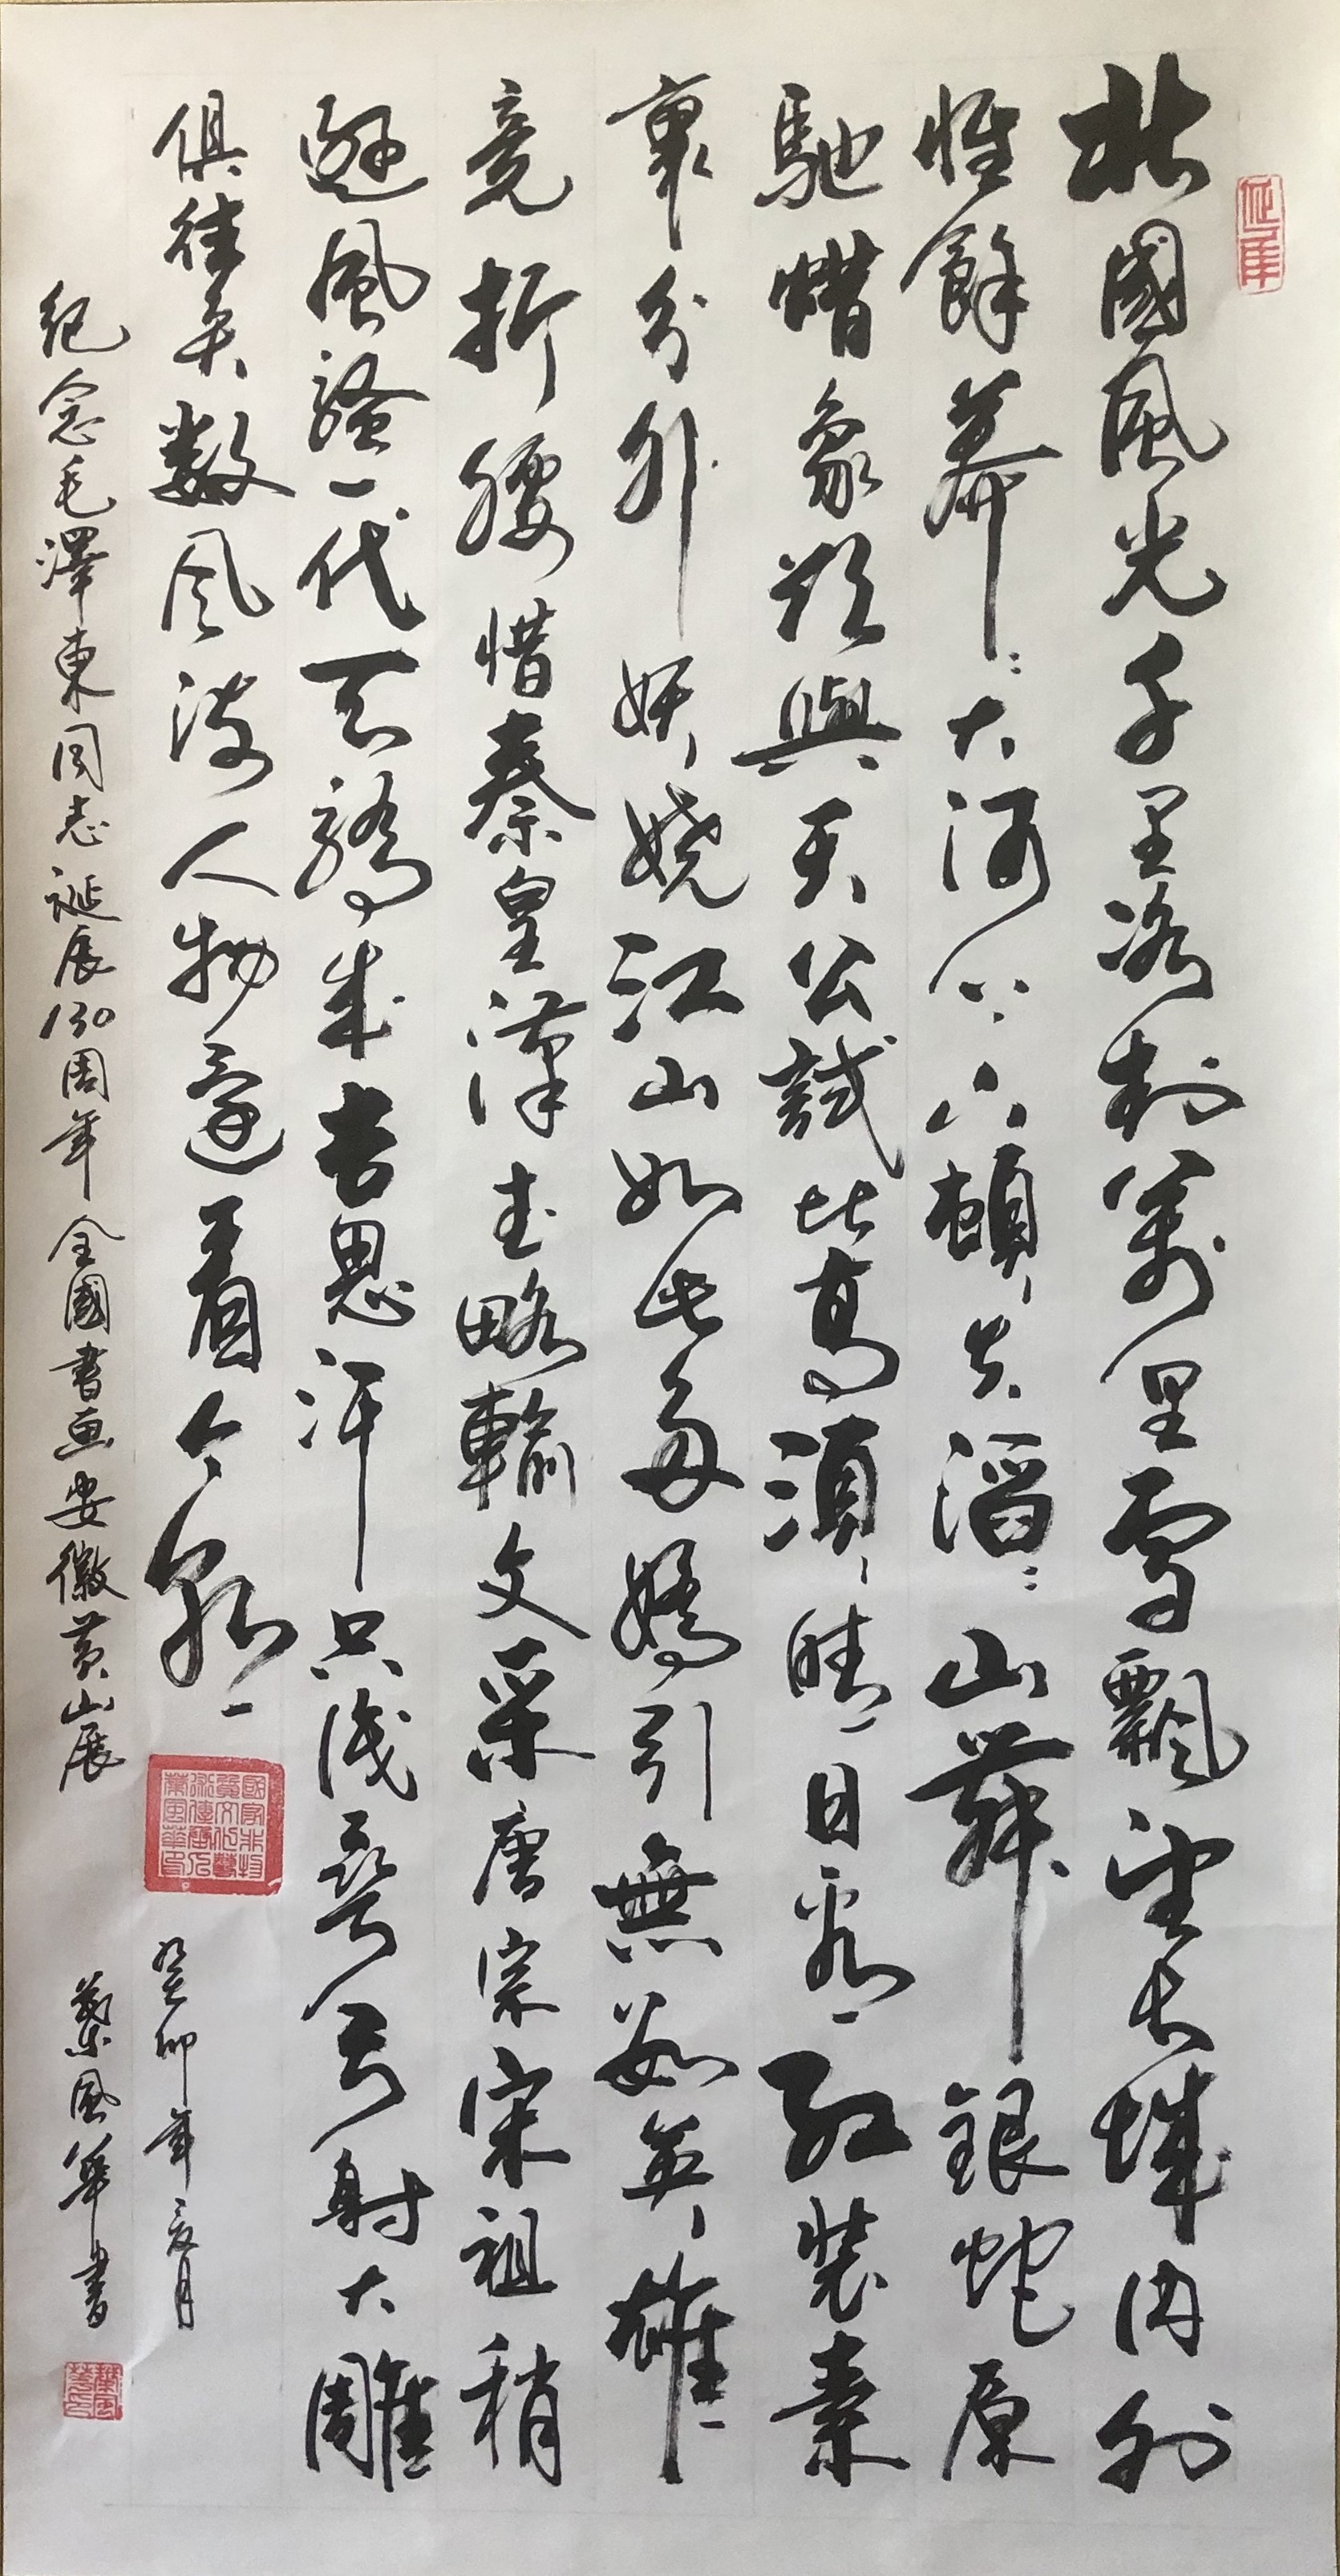 北國風光千里冰封萬里雪飄望长城内外
惟餘莽::大河上下頓失滔::山舞銀蛇原
馳蜡象欲與天公試比高須晴日看红装素
裹分外妖嬈江山如此多嬌引無數英雄
竞折腰惜秦皇漢武略輸文采唐宗宋祖稍
遜風騷一代天驕成吉思汗只識彎弓射大雕
俱往矣数风流人物還看今朝
癸卯年夏月
纪念毛澤東同志诞辰130周年 全國書画安徽黄山展
蔡風華書